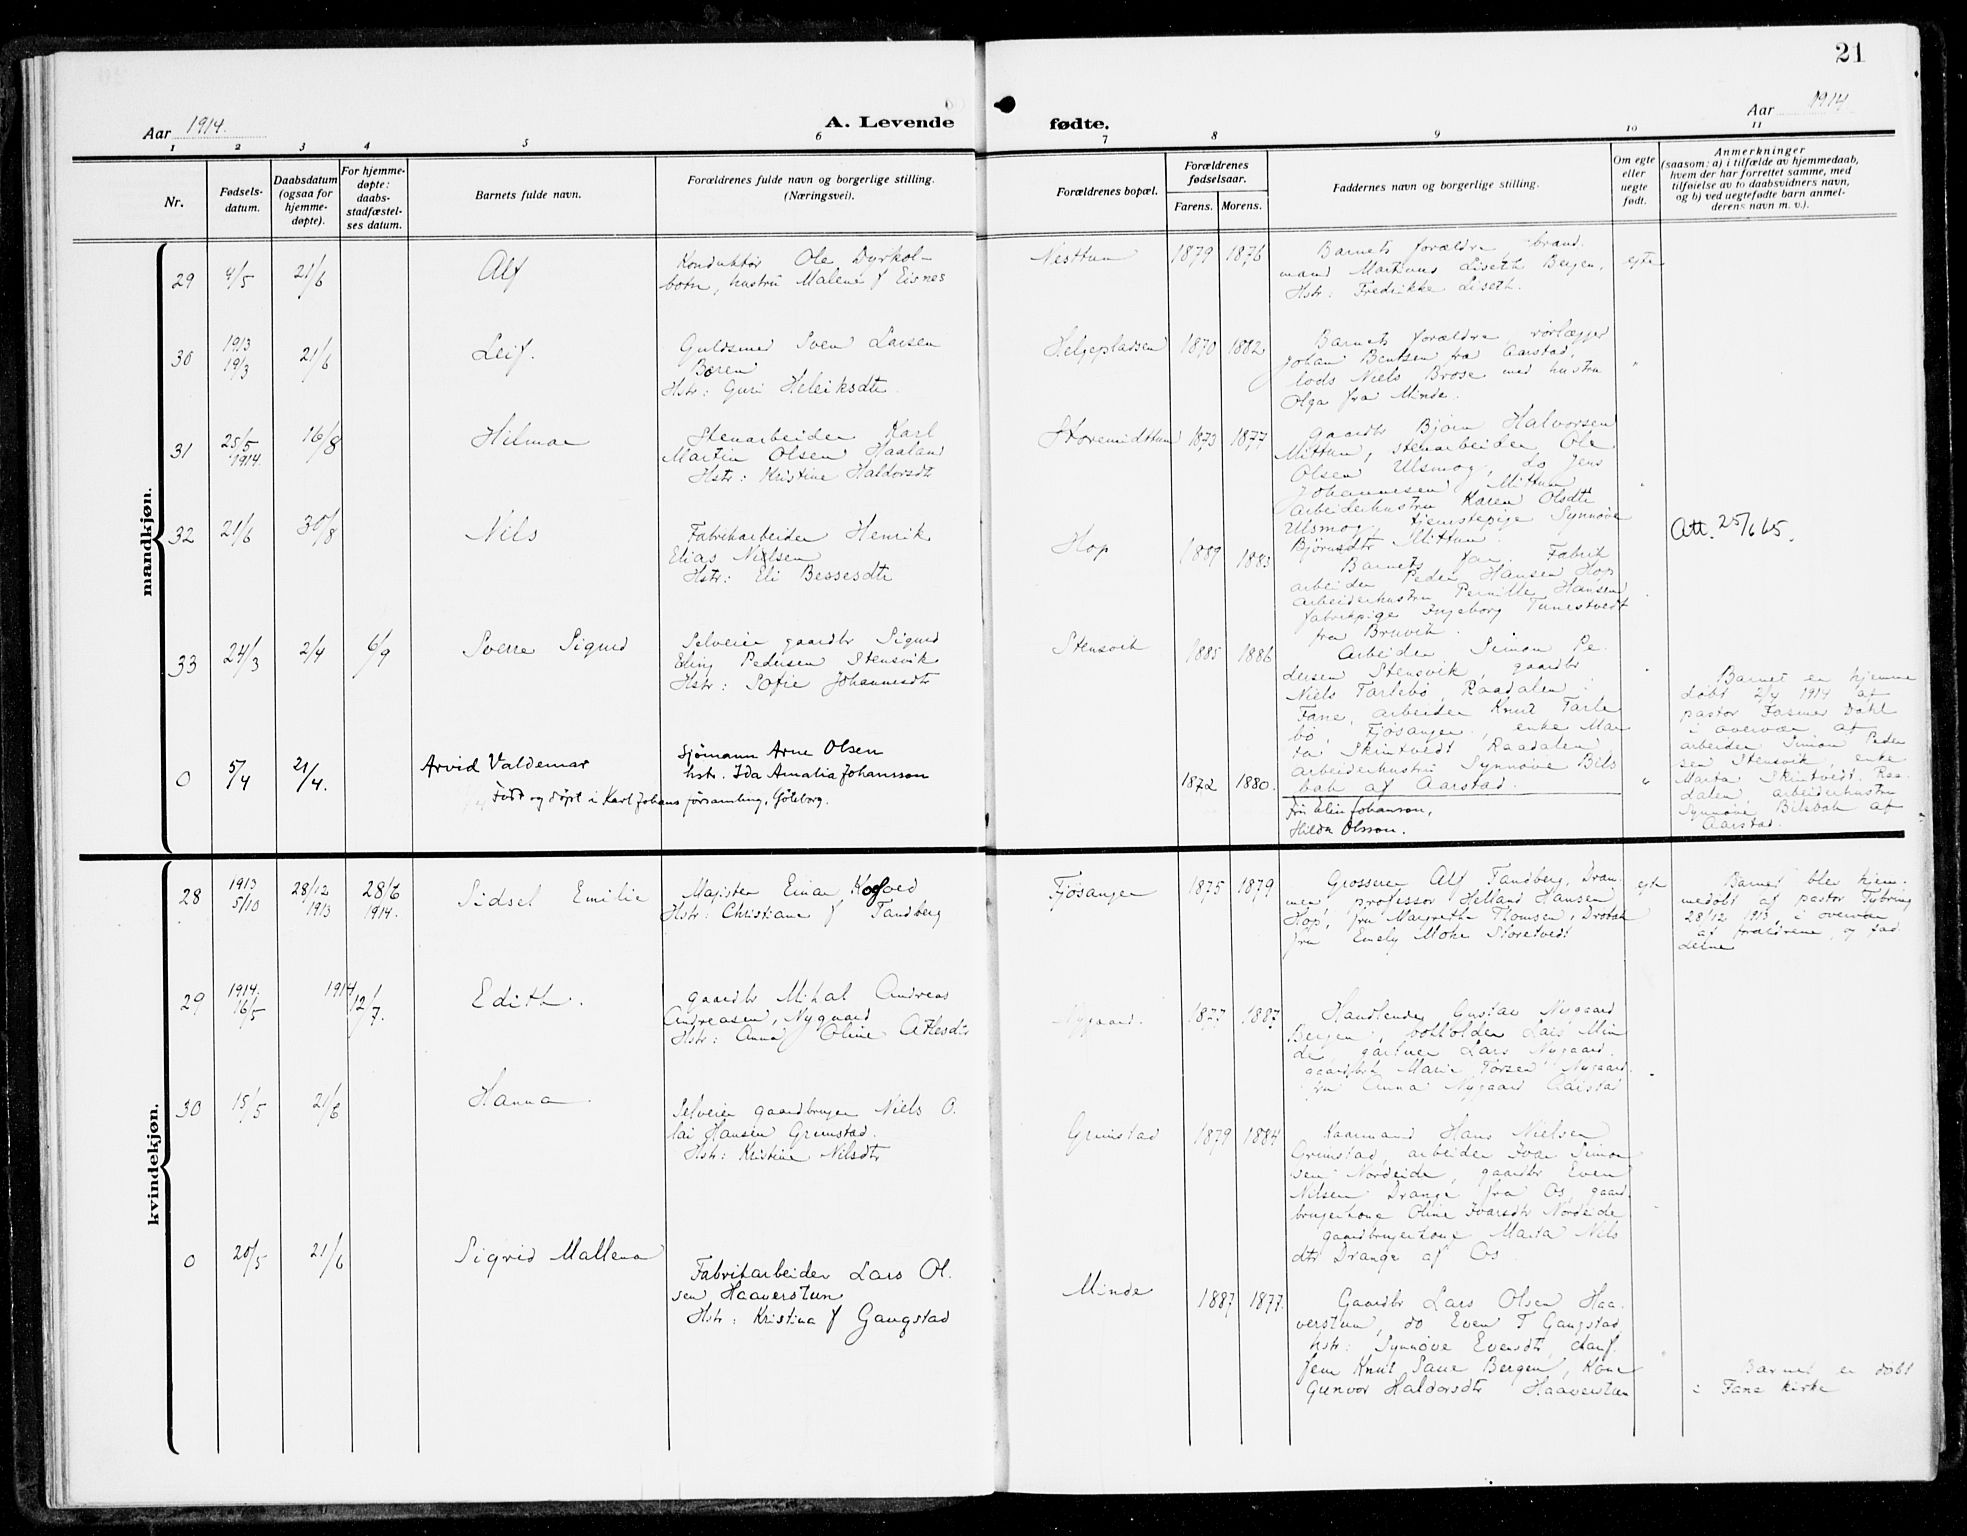 21
Aar 1914.
A. Levende
fødte.
Aar 1914
1 2 3 4 5 6 7 8 9 10 11
Nr.
Fødsels-
datum.
Daabsdatum
(ogsaa for
hjemme-
døpte).
For hjemme-
døpte:
daabs-
stadfæstel-
ses datum.
Barnets fulde navn.
Forældrenes fulde navn og borgerlige stilling.
(Næringsvei).
Forældrenes bopæl.
Forældrenes
fødselsaar.
Farens. Morens.
Faddernes navn og borgerlige stilling.
Om egte
eller
uegte
født.
Anmerkninger
(saasom: a) i tilfælde av hjemmedaab,
hvem der har forrettet samme, med
tilføielse av to daabsvidners navn,
og b) ved uegtefødte barn anmel-
derens navn m. v.).
mandkjøn.
29 4/5 21/6 Alf
Konduktør Ole Dyrkol-
botn, hustru Malene f Eisnes
Nesttun 1879 1876
Barnets forældre, brand-
mand Martinus Liseth Bergen,
Hstr: Fredrikke Liseth.
egte
30 1913 19/3 21/6 Leif.
Guldsmed Sven Larsen
Børen
Hstr: Guri Heleiksdtr.
Helgepladsen 1870 1882
Barnets forældre, rørlægger
Johan Bentsen fra Aarstad,
lods Niels Brose med hustru
Olga fra Minde.
"
31 25/5 1914. 16/8 Hilmar
Stenarbeider Karl
Martin Olsen Haaland
Hstr: Kristine Haldorsdtr
Storemidttun 1873 1877
Gaardbr Bjørn Halvorsen
Mittun, stenarbeider Ole
Olsen Ulsmog, do Jens
Johannesen Mittun
Arbeiderhustru Karen Olsdtr
Ulsmog, tjenestepige Synnøve
Bjørnsdtr Mittun.
"
32 21/6 30/8 Nils
Fabrikarbeider Henrik
Elias Nielsen
Hstr: Eli Bessesdtr
Hop 1889 1883
Barnets far, Fabrik
arbeider Peder Hansen Hop
arbeiderhustru Pernille Hansen
fabrikpige Ingeborg Tunestvedt
fra Bruvik.
Att. 25/6 65.
33 24/3 2/4 6/9 Sverre Sigurd
Selveier gaardbr Sigurd
Eling Pedersen Stensvik
Hstr: Sofie Johannesdtr
Stensvik 1885 1886
Arbeider Simon Pe-
dersen Stensvik, gaardbr
Niels Tarlebø, Raadalen i
Fane, arbeider Knut Tarle
bø, Fjøsanger, enke Mar
ta Skintvedt Raadalen,
arbeiderhustru Synnøve Bils
bak af Aarstad.
Barnet er hjemme
døbt 2/4 1914 af
pastor Fasmer Dahl
i overvær af
arbeider Simon Peder
sen Stensvik, enke
Marta Skintvedt, Raa-
dalen, arbeiderhustru
Synnøve Bilsbak af
Aarstad.
0 5/4 21/4. Arvid Valdemar
Sjømann Arne Olsen
hstr. Ida Amalia Johansson
Født og døpt i Karl Johans församling, Göteborg.
1872 1880.
Fru Elin Johanson,
Hilda Olsson.
"
kvindekjøn.
28 1913 5/10 28/12 1913 28/6 1914. Sidsel Emilie
Magister Einar Kofoed
Hstr: Christiane f Tandberg
Fjøsanger 1875 1879
Grosserer Alf Tandberg, Dram-
men, professor Helland Hansen
Hop, fru Margrethe Thomsen, Drøbak
fru Emely Mohr Storetvedt
egte
Barnet blev hjem-
medøbt af pastor Tybring
28/12 1913, i overvær
af forældrene, og fad
derne
29 1914. 16/5 1914 12/7. Edith.
gaardbr Mikal Andreas
Andreasen, Nygaard
Hstr: Anna Oline Atlesdtr
Nygaard. 1877 1887
Handlende Gustav Nygaard
Bergen, Lars Min
de, gartner Lars Nygaard.
Marie Nygaard.
fru Anna Nygaard Aarstad
30 15/5 21/6 Hanna.
Selveier gaardbruger Niels O-
lai Hansen Grimstad.
Hstr: Kristine Nilsdtr
Grimstad 1879 1884
Kaarmand Hans Nielsen
Grimstad, arbeider Ivar Simon
sen Nordeide, gaardbr Even
Nilsen Drange fra Os, gaard-
brugerkone Oline Ivarsdtr Nordeide
gaardbrugerkone Marta Nils
dtr Drange af Os
0 20/5 21/6 Sigrid Mallena
Fabrikarbeider Lars Ol-
sen Haaverstun
Hstr: Kristina f Gangstad
Minde 1887 1877.
Gaardbr Lars Olsen Haa-
verstun, do Even T Gangstad
hstr: Synnøve Evensdtr,
Knut Bergen, Kone
Gunvor Haldorsdtr Haaverstun
Barnet er døbt
i Fane kirke